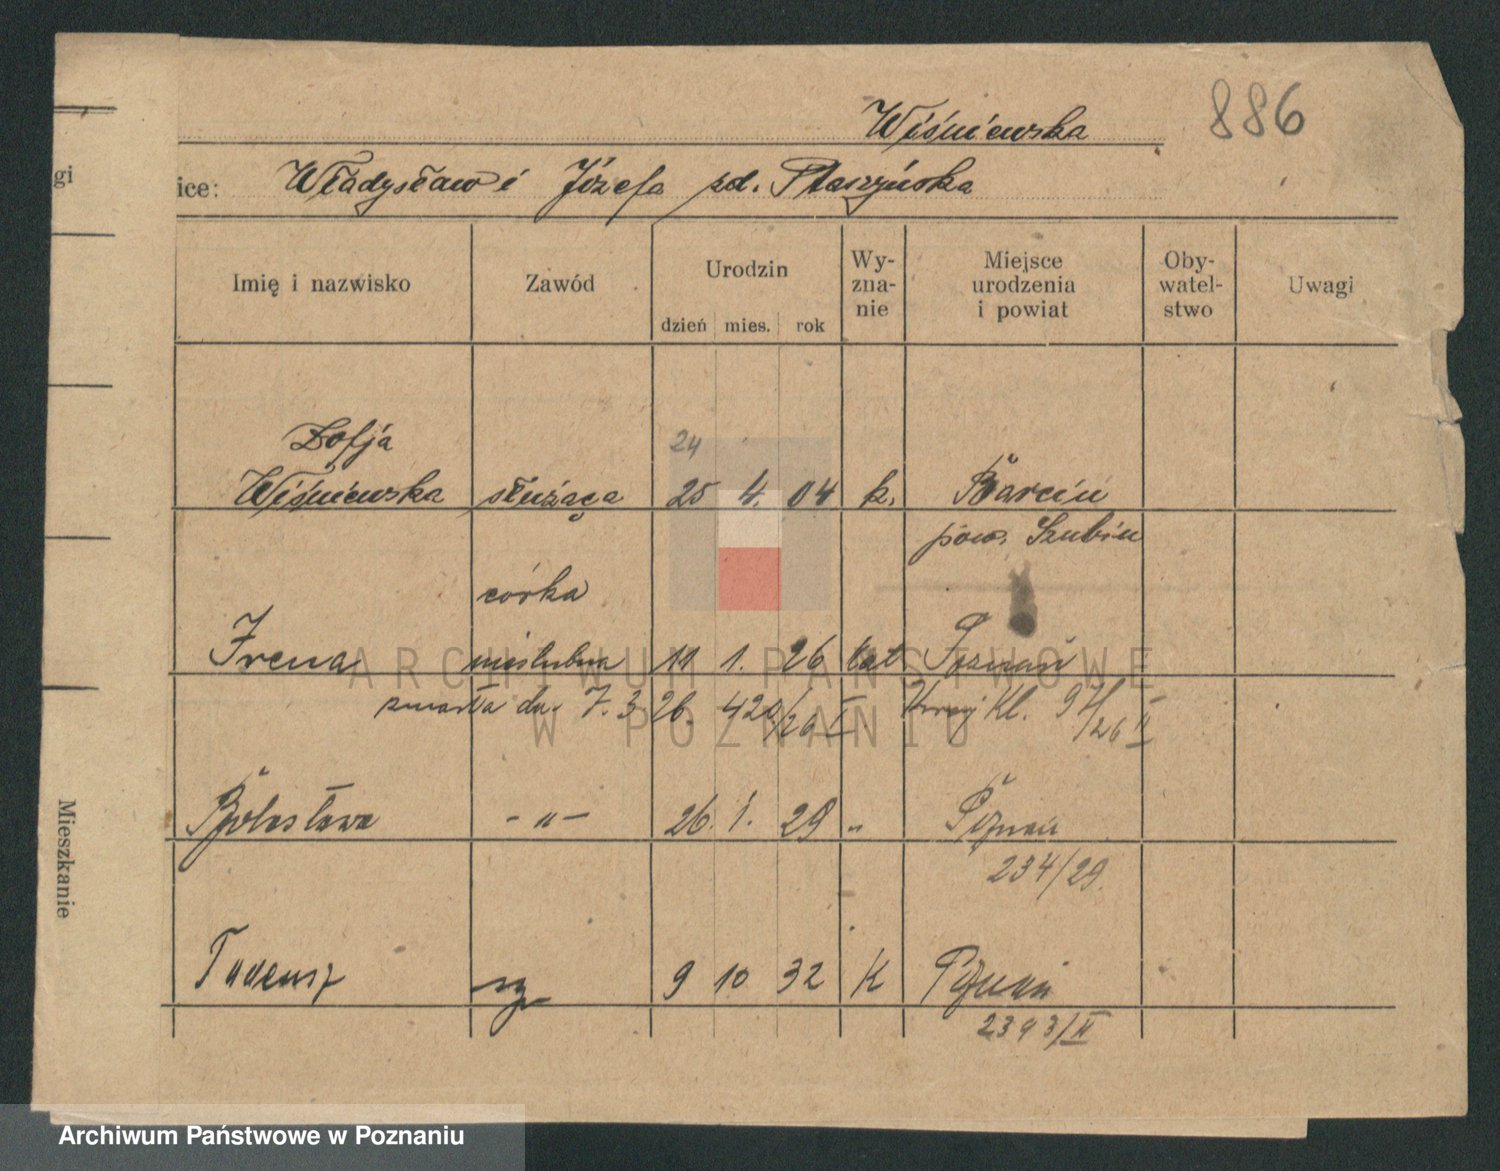 886
Wiśniewska
ice: Władysław i Józefa zd. Ptaszyńska
gi
Imię i nazwisko Zawód Urodzin dzień mies. rok Wy-zna-nie Miejsce urodzenia i powiat Oby-watel-stwo Uwagi
Zofja 24
Wiśniewska służąca 25 4. 04 k. Barcin
pow. Szubin
córka
Irena nieślubna 11 1. 26 kat Poznań
zmarła dn. 7. 3. 26. 420/26 I Kl. 94/26 II
Bolesława -„- 26. 1. 29 „ Poznań
234/29.
Tadeusz 9 10 32 K Poznań
2393/II
Mieszkanie
ARCHIWUM PAŃSTWOWE
W POZNANIU
Archiwum Państwowe w Poznaniu